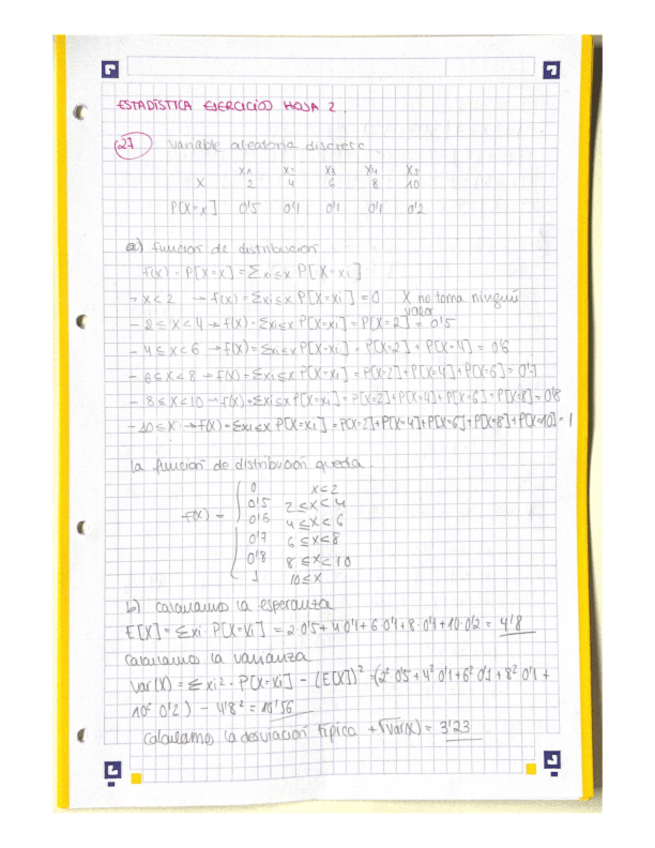 ESTADÍSTICA EJERCICIOS HOJA 2.
27 Variable aleatoria discreta
X1 X2 X3 X4 X5
X 2 4 6 8 10
P[X=x] 0'5 0'1 0'1 0'1 0'2
a) función de distribución
f(x) = P[X=x] = Σxi≤x P[X=xi]
- x<2 → f(x) = Σxi≤x P[X=xi] = 0 X no toma ningún valor
- 2≤x<4 → f(x) = Σxi≤x P[X=xi] = P[X=2] = 0'5
- 4≤x<6 → f(x) = Σxi≤x P[X=xi] = P[X=2] + P[X=4] = 0'6
- 6≤x<8 → f(x) = Σxi≤x P[X=xi] = P[X=2] + P[X=4] + P[X=6] = 0'7
- 8≤x<10 → f(x) = Σxi≤x P[X=xi] = P[X=2] + P[X=4] + P[X=6] + P[X=8] = 0'8
- 10≤x → f(x) = Σxi≤x P[X=xi] = P[X=2] + P[X=4] + P[X=6] + P[X=8] + P[X=10] = 1
la función de distribución queda:
0 x<2
0'5 2≤x<4
f(x) = 0'6 4≤x<6
0'7 6≤x≤8
0'8 8≤x<10
1 10≤x
b) calculamos la esperanza
E[X] = Σxi · P[X=xi] = 2·0'5 + 4·0'1 + 6·0'1 + 8·0'1 + 10·0'2 = 4'8
calculamos la varianza
Var(X) = Σxi² · P[X=xi] - (E[X])² = (2²·0'5 + 4²·0'1 + 6²·0'1 + 8²·0'1 +
10²·0'2) - 4'8² = 10'56
calculamos la desviación típica +√Var(x) = 3'23